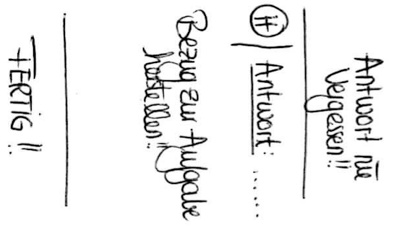 Antwort nie
Vergessen!!
H) Antwort: ......
Bezug zur Aufgabe
herstellen!!
FERTIG!!